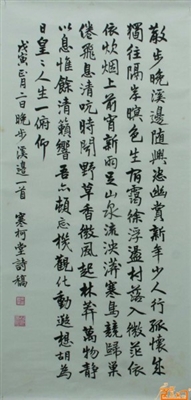 散步晚溪邊隨興恣幽賞新年少人行孤懷
獨往隔岸暝色生宿靄徐浮盪村落入微茫依
依炊烟上前宵新雨足山泉流泱漭寒鳥競歸巢
倦飛息清吭時聞野草香微風起林莽萬物靜
以息惟餘清籟響吾亦頓忘機觀化動遐想胡爲
日皇〻人生一俯仰
戊寅正月二日晚步溪邊一首 寒柯堂詩稿